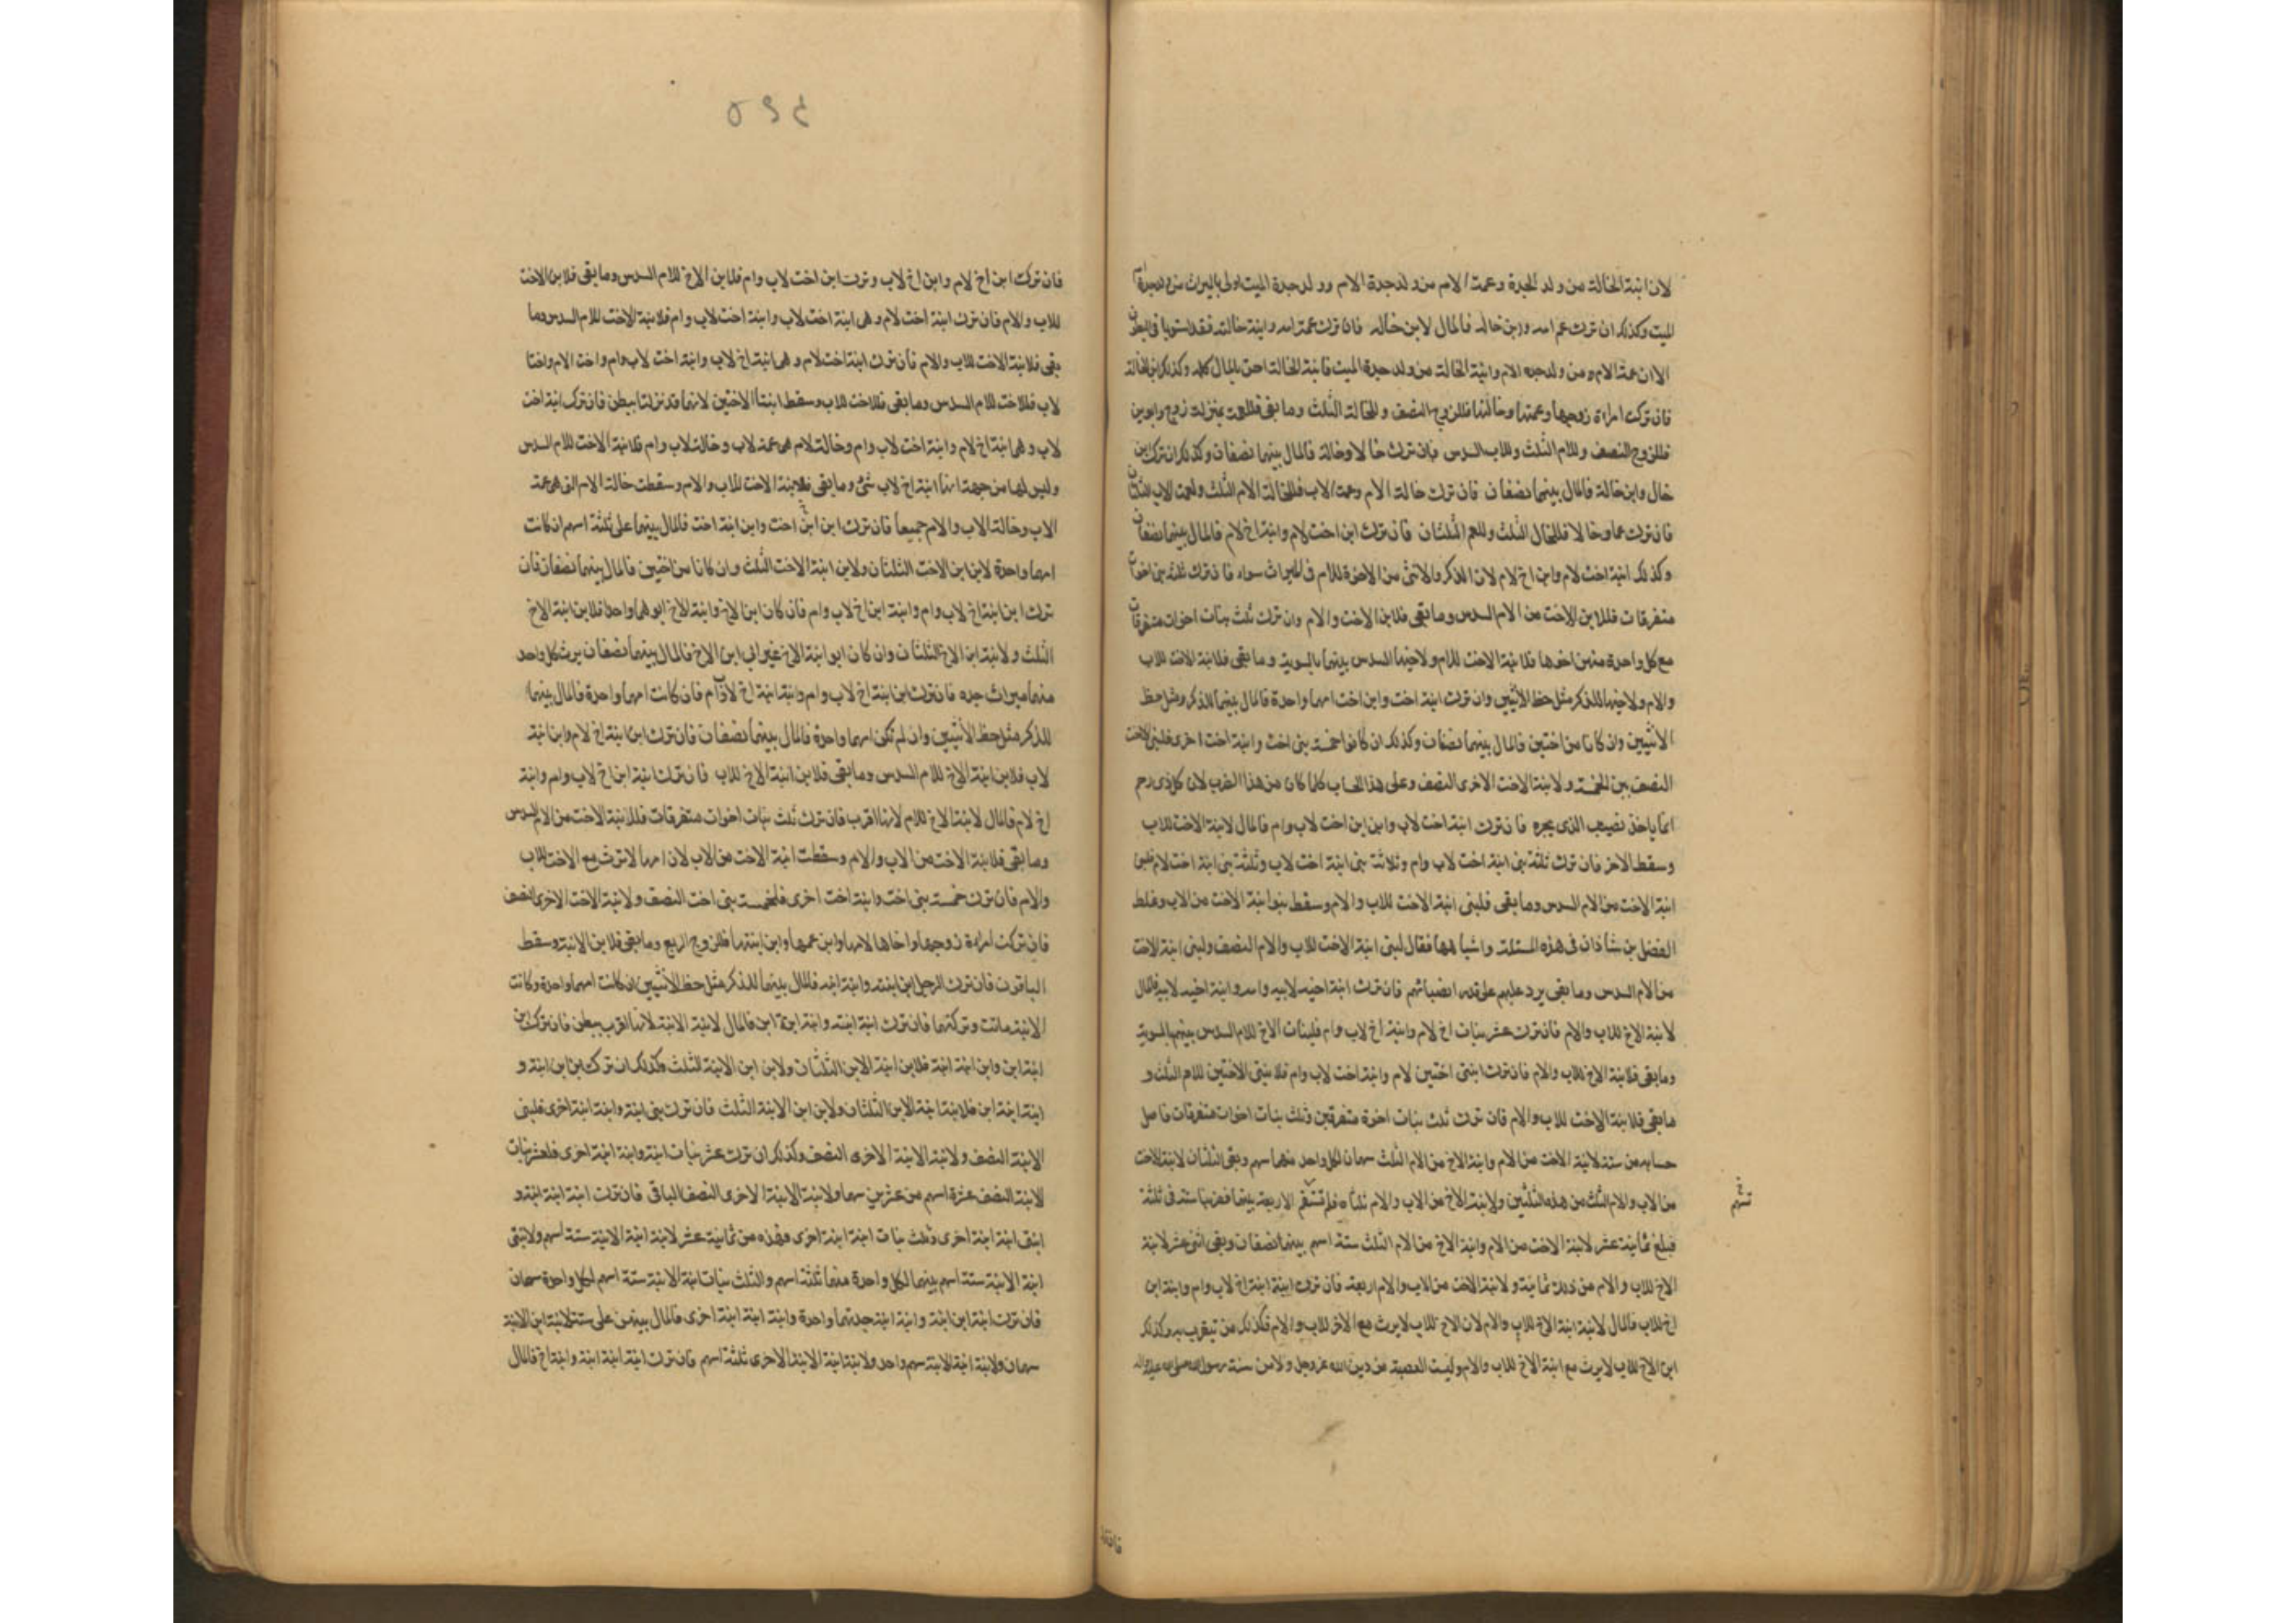 لان ابنة الخالة من ولد الجدة وعمة الام من ولد جدة الام وولد جدة الميت اولى بالميراث من ولد جدة ام
الميت وكذلك ان ترك عم امه وابن خاله فالمال لابن خاله فان ترك عمة امه وابنة خالته فقد استويا فى البطون
الا ان عمة الام من ولد جده الام وابنة الخالة من ولد جدة الميت فابنة الخالة احق بالمال كله وكذلك ابن الخالة
فان تركت امراة زوجها وعمتها وخالتها فللزوج النصف وللخالة الثلث وما بقى فللعمة بمنزلة زوج وابوين
فللزوج النصف وللام الثلث وللاب السدس فان ترك خالا وخالة فالمال بينهما نصفان وكذلك ان ترك ابن
خال وابن خالة فالمال بينهما نصفان فان ترك خالة الام وعمة الاب فللخالة الام الثلث ولعمة الاب الثلثان
فان ترك عما وخالا فللخال الثلث وللعم الثلثان فان ترك ابن اخت لام وابنة اخ لام فالمال بينهما نصفان
وكذلك ابنة اخت لام وابن اخ لام لان الذكر والانثى من الاخوة للام فى الميراث سواء فان ترك ثلثة بنى اخوات
متفرقات فللابن الاخت من الام السدس وما بقى فلابن الاخت والام وان ترك ثلث بنات اخوات متفرقات
مع كل واحدة منهن اخوها فلابنة الاخت للام ولاخيها السدس بينهما بالسوية وما بقى فلابنة الاخت للاب
والام ولاخيها للذكر مثل حظ الانثيين وان ترك ابنة اخت وابن اخت امهما واحدة فالمال بينهما للذكر مثل حظ
الانثيين وان كانا من اختين فالمال بينهما نصفان وكذلك ان كانوا خمسة بنى اخت وابنة اخت اخرى فلبنى الاخت
النصف بين الخمسة ولابنة الاخت الاخرى النصف وعلى هذا الحساب كلما كان من هذا الضرب لان كل ذى رحم
انما ياخذ نصيب الذى يجره فان ترك ابنة اخت لاب وابن ابن اخت لاب وام فالمال لابنة الاخت للاب
وسقط الاخر فان ترك ثلثة بنى ابنة اخت لاب وام وثلاثة بنى ابنة اخت لاب وثلثة بنى ابنة اخت لام فلبنى
ابنة الاخت من الام السدس وما بقى فلبنى ابنة الاخت للاب والام وسقط بنو ابنة الاخت من الاب وغلط
الفضل بن شاذان فى هذه المسئلة واشباهها فقال لبنى ابنة الاخت للاب والام النصف ولبنى ابنة الاخت
من الام السدس وما بقى يرد عليهم على قدر انصبائهم فان ترك ابنة اخيه لابيه وامه وابنة اخيه لابيه فالمال
لابنة الاخ للاب والام فان ترك عشر بنات اخ لام وابنة اخ لاب وام فلبنات الاخ للام السدس بينهم بالسوية
وما بقى فلابنة الاخ للاب والام فان ترك ابنتى اختين لام وابنة اخت لاب وام فلابنتى الاختين للام الثلث و
ما بقى فلابنة الاخت للاب والام فان ترك ثلث بنات اخوة متفرقين وثلث بنات اخوات متفرقات فاصل
حسابه من ستة لابنة الاخت من الام وابنة الاخ من الام الثلث سهمان لكل واحد منهما سهم وبقى الثلثان لابنة الاخت
من الاب والام الثلث من هذه الثلثين ولابنة الاخ من الاب والام ثلثاه فلم تستقم الاربعة بينهما فضربنا ستة فى ثلثة
فبلغ ثمانية عشر لابنة الاخت من الام وابنة الاخ من الام الثلث ستة اسهم بينهما نصفان وبقى اثنى عشر لابنة
الاخ للاب والام من ذلك ثمانية ولابنة الاخت من الاب والام اربعة فان ترك ابنة ابنة اخ لاب وام وابنة ابن
اخ للاب فالمال لابنة ابنة الاخ للاب والام لان الاخ للاب لا يرث مع الاخ للاب والام فكذلك من تيقرب به وكذلك
ابن الاخ للاب لا يرث مع ابنة الاخ للاب والام وليست العصبة من دين الله عز وجل ولا من سنة رسول الله صلى الله عليه واله
٥٩٤
فان ترك ابن اخ لام وابن اخ لاب وترك ابن اخت لاب وام فلابن الاخ للام السدس وما بقى فلابن الاخت
للاب والام فان ترك ابنة اخت لام وهى ابنة اخت لاب وابنة اخت لاب وام فلابنة الاخت للام السدس وما
بقى فلابنة الاخت للاب والام فان ترك ابنة اخت لام وهى ابنة اخ لاب وابنة اخت لاب وام واخت الام واختا
لاب فللاخت للام السدس وما بقى فللاخت للاب وسقط ابنتا الاختين لانهما قد نزلتا ببطن فان ترك ابنة اخت
لاب وهى ابنة اخ لام وابنة اخت لاب وام وخالة لام هى عمة لاب وخالة لاب وام فلابنة الاخت للام السدس
وليس لها من جهة انها ابنة اخ لاب شئ وما بقى فلابنة الاخت للاب والام وسقطت خالة الام التى هى عمة
الاب وخالة الاب والام جميعا فان ترك ابن ابن اخت وابن ابنة اخت فالمال بينهما على ثلثة اسهم ان كانت
امهما واحدة لابن ابن الاخت الثلثان ولابن ابنة الاخت الثلث وان كانا من اختين فالمال بينهما نصفان فان
ترك ابن ابنة اخ لاب وام وابنة ابن اخ لاب وام فان كان ابن الاخ وابنة الاخ ابوهما واحدا فلابن ابنة الاخ
الثلث ولابنة ابن الاخ الثلثان وان كان ابو ابنة الاخ غير ابى ابن الاخ فالمال بينهما نصفان يرث كل واحد
منهما ميراث جده فان ترك ابن ابنة اخ لاب وام وابنة ابنة اخ لاب وام فان كانت امهما واحدة فالمال بينهما
للذكر مثل حظ الانثيين وان لم تكن امهما واحدة فالمال بينهما نصفان فان ترك ابن ابنة اخ لام وابن ابنة
لاب فلابن ابنة الاخ للام السدس وما بقى فلابن ابنة الاخ للاب فان ترك ابنة ابن اخ لاب وام وابنة
اخ لام فالمال لابنة الاخ للام لانها اقرب فان ترك ثلث بنات اخوات متفرقات فللابنة الاخت من الام السدس
وما بقى فلابنة الاخت من الاب والام وسقطت ابنة الاخت من الاب لان امها لا ترث مع الاخت للاب
والام فان ترك خمسة بنى اخت وابنة اخت اخرى فلخمسة بنى اخت النصف ولابنة الاخت الاخرى النصف
فان تركت امراءة زوجها واخاها لامها وابن عمها وابن ابنتها فللزوج الربع وما بقى فلابن الابنة وسقط
الباقون فان ترك الرجل ابن ابنته وابنة ابنه فالمال بينهما للذكر مثل حظ الانثيين ان كانت امهما واحدة وكانت
الابنة ماتت وتركتهما فان ترك ابنة ابنته وابنة ابنة ابن فالمال لابنة الابنة لانها اقرب ببطن فان ترك ابن
ابنة ابن وابن ابنة ابنة فلابن ابنة الابن الثلثان ولابن ابن الابنة الثلث وكذلك ان ترك ابن ابن ابنة و
ابنة ابنة ابن فلابنة ابنة الابن الثلثان ولابن ابن الابنة الثلث فان ترك بنى ابنة وابنة ابنة اخرى فلبنى
الابنة النصف ولابنة الابنة الاخرى النصف وكذلك ان ترك عشر بنات ابنة وابنة ابنة اخرى فلعشر بنات
لابنة النصف عشرة اسهم من عشرين سهما ولابنة الابنة الاخرى النصف الباقى فان ترك ابنة ابنة ابنة و
ابنتى ابنة ابنة اخرى وثلث بنات ابنة ابنة اخرى فهذه من ثمانية عشر لابنة ابنة الابنة ستة اسهم ولابنتى
ابنة الابنة ستة اسهم بينهما لكل واحدة منهما ثلثة اسهم والثلث بنات ابنة الابنة ستة اسهم لكل واحدة سهمان
فان ترك ابنة ابن ابنة وابنة ابنة ابنة جدتهما واحدة وابنة ابنة ابنة اخرى فالمال بينهن على ستة لابنة ابن الابنة
سهمان ولابنة ابنة الابنة سهم واحد ولابنة ابنة الابنة الاخرى ثلثة اسهم فان ترك ابنة ابنة ابنة وابنة اخ فالمال